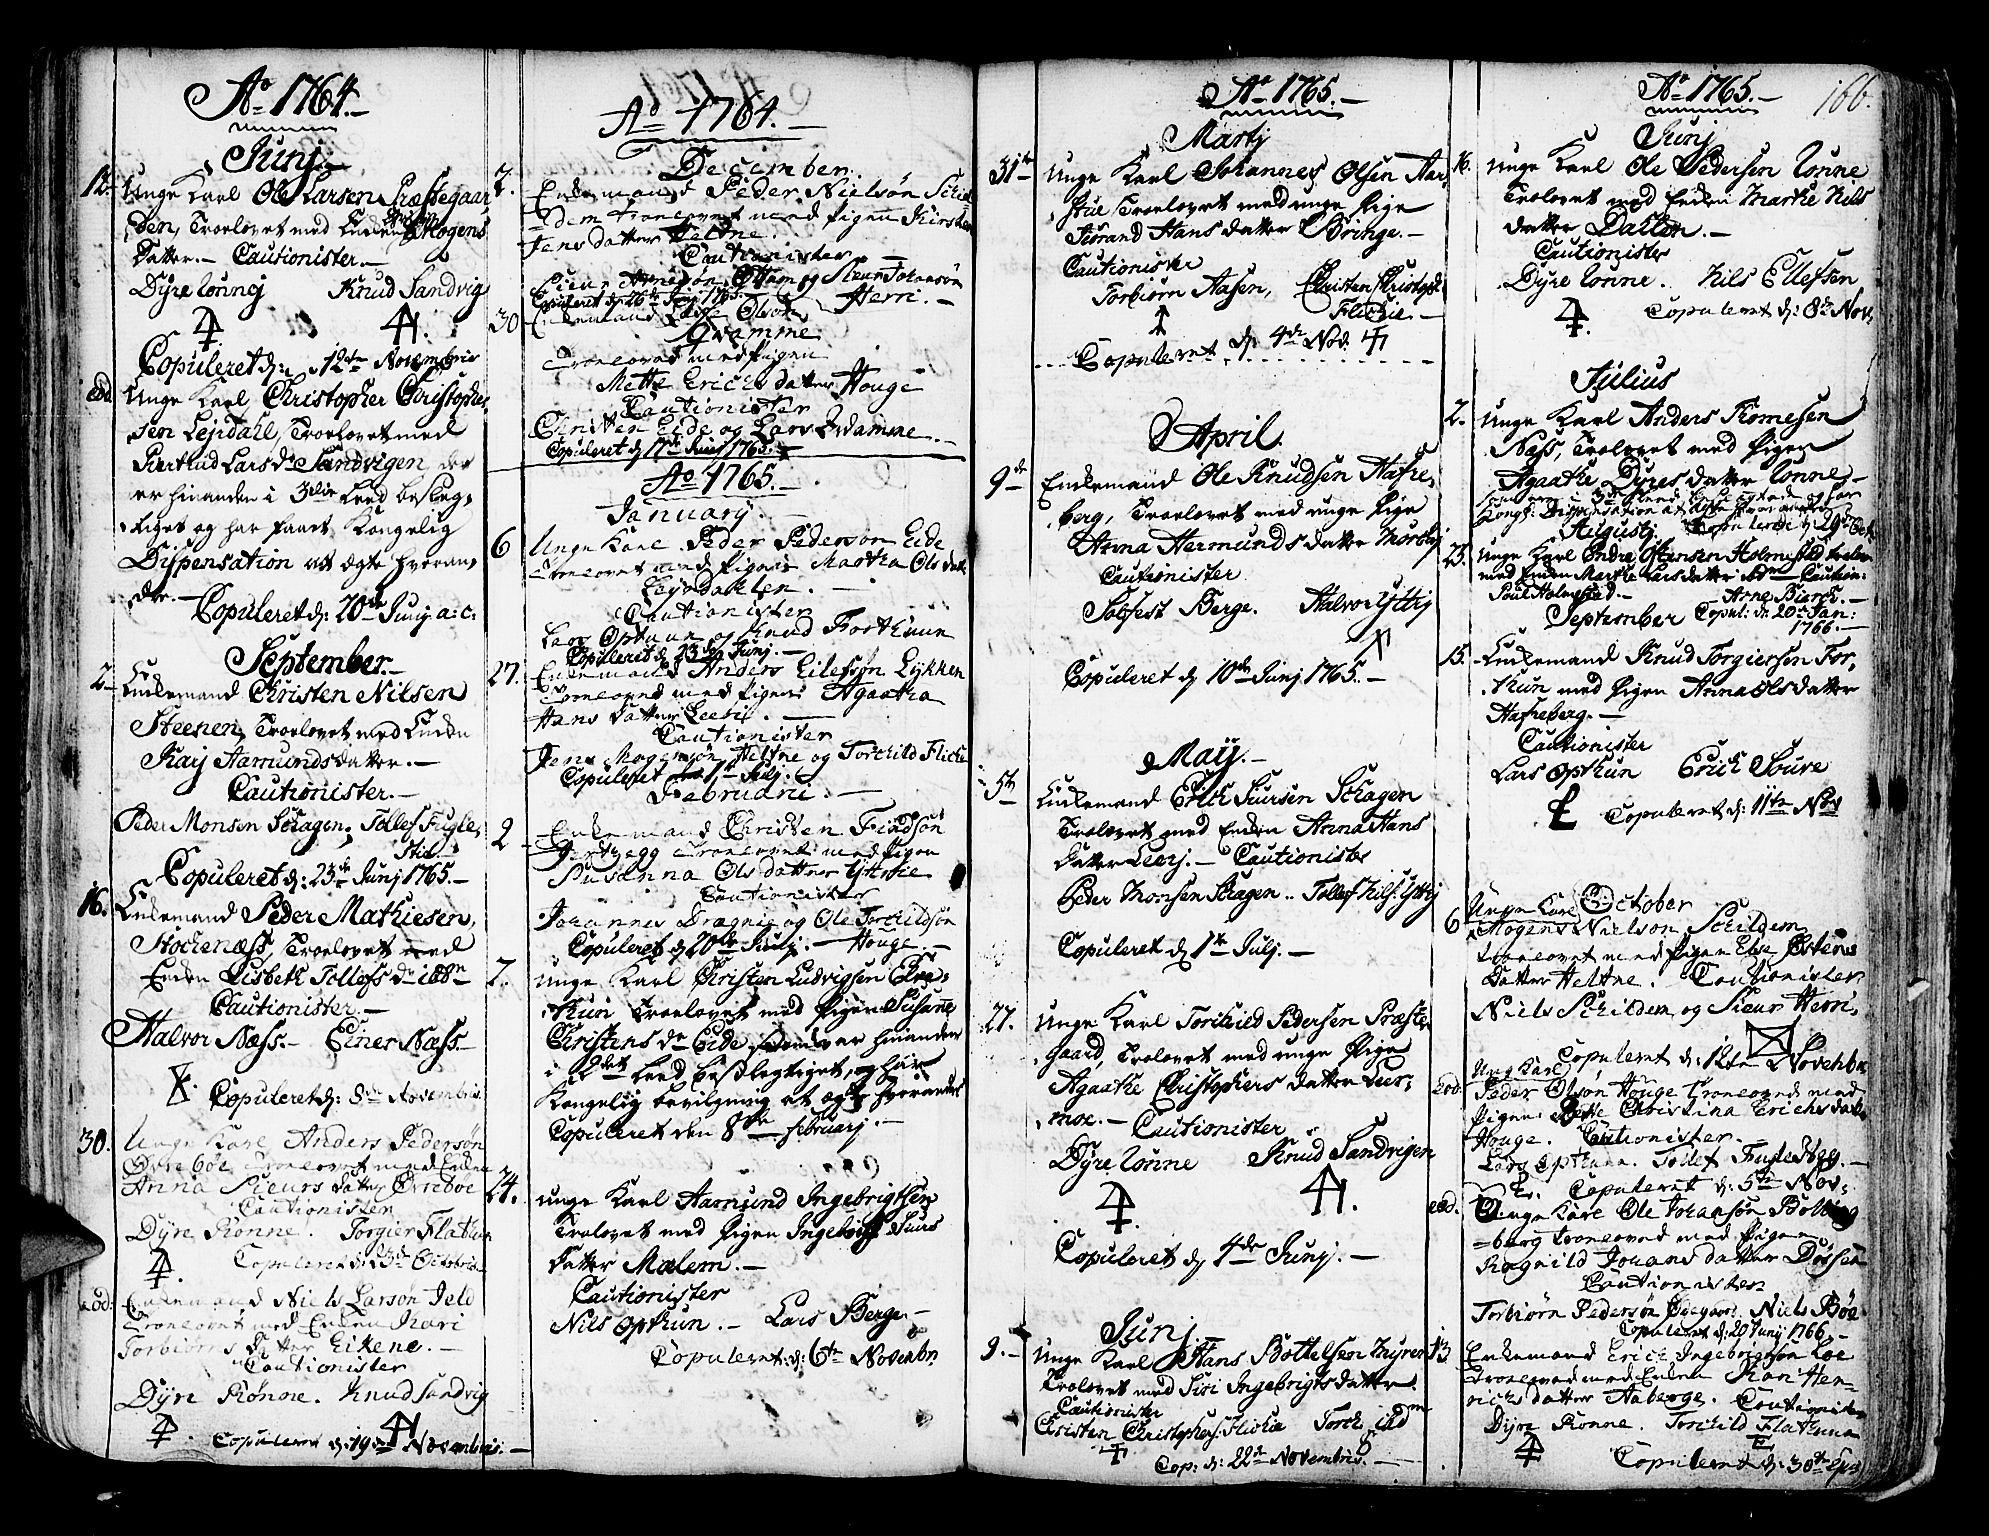 Ao 1764.
Junj
12. Unge Karl Ole Larsen Præstegaar,
den, Troelovet med Enken Mogens
Datter. Cautionister.
Dyre Lønnej Knud Sandvig
Copuleret d: 12te Novembris
eod. Unge Karl Christopher Christopher,
sen Lejrdahl, Troelovet med
Giertrud Larsdr Sandvigen, der
er hinanden i 3die Leed besleg,
tiget og har faaet Kongelig
Dispensation at ægte hveran,
dre. Copuleret d: 20de Junj. a: c:
September.
2. Enkemand Christen Nilsen
Steenen, Troelovet med Enken
Kaij Aamundsdatter.
Cautionister.
Peder Monsen Schagen, Tollef Fugle,
Copuleret d: 23de Junj 1765.
16. Enkemand Peder Mathiesen,
Stochenæss, Troelovet med
Enken Lisbeth Tollefs dr ibdm
Cautionister.
Halvor Næss. Einer Næss.
Copuleret d: 8de Novembris.
30. Unge Karl Anders Pedersøn
Øvrebøe troelovet med Enken
Anna Siurs datter Øvrebøe
Cautionister
Dyre Rønne. Torgier Flathun
Copuleret d: 23de Octobris
eod: Enkemand Niels Larsøn Jeld
Troelovet med Enken Kari
Torbiørns Datter Eikene.
Cautionister
Dyre Rønne. Knud Sandvig
Copuleret d: 19de Novembris.
Ao 1764.
December.
2. Enkemand Peder Nielsøn Schil
dem troelovet med Pigen Kirsten
Jens datter Heltne.
Cautionister
Herri.
Copuleret d: 26de Junj 1765.
30 Enkemand Lasse Olsøn
Qvamme
troelovet med Pigen
Mette Erichs datter Houge
Cautionister
Christen Eide og Lars Qvamme.
Copuleret d 17de Junj 1765.
Ao 1765.
January.
6 Unge Karl Peder Pedersøn Eide
troelovet med Pigen Martha Ols datter
Lejrdahlen.
Cautionister
Lars Opthun og Knud Forthuun
Copuleret d 23de Junj.
27. Enkemand Anders Eilefsøn Lykken
troelovet med Pigen Agaatha
Hans datter
Cautionister
Jens Mogensøn Heltne og Torchild Flicke
Copuleret 1te Julj.
Februarii.
2 Enkemand Christen Findsøn
troelovet med Pigen
Susanna Olsdatter Yttrie
Cautionister
Johannes Drægnie og Ole Torchildsøn
Copuleret d 20de Julj. Houge.
7. Unge Karl Christen Ludvigsen
Troelovet med Pigen Susane
Christens dr Eide, hinanden
i 2det Leed besslegtiget, og har
Kongelig bevilgning at ægte hverandre
Copuleret den 8de February.
24. unge Karl Aamund Ingebrigtsen
Trolovet med Pigen Ingeborg Siurs
Datter Molem.
Cautionister
Nils Opthun. Lars Berge.
Copuleret d: 6te Novembr.
Ao 1765.
Martj
31te Unge Karl Johannes Olsen Aar,
hue, Troelovet med unge Pige
Jorand Hans datter Bringe.
Cautionister
Torbiørn Aasen, Christen Christoph:
Flickie.
Copuleret d 4de Nov.
April.
9de Enkemand Ole Knudsen Hafre,
berg, Troelovet med unge Pige
Anna Hermunds datter Mørkrj
Cautionister
Solfest Berge. Halvor Yttrj
Copuleret d 10de Junj 1765.
Maij.
5te Enkemand Erich Siursen Schagen
Trolovet med Enken Anna Hans
Datter Leerj. Cautionister
Peder Monsen Skagen. Tollef Nils: Yttrj
Copuleret d 1te Julj.
27. Unge Karl Torchild Pedersen Præste,
gaard, Trolovet med unge Pige
Agaathe Christophers datter Leer,
moe. Cautionister
Dyre Lønne Knud Sandvigen
Copuleret d 4de Junj.
Junj
9. Unge Karl Hans Bottelsen Myren
Trolovet med Siri Ingebrigtsdatter
Cautionister
Christen Christophers. Flickie Torch ibdm
Cop: d: 22de Novembris.
Ao 1765. 166.
Junj
16. Unge Karl Ole Pedersen Lønne
Trolovet med Enken Marthe Nils
datter Dalen.
Cautionister
Dyre Lønne. Nils Ellefsen
Copuleret d: 8de Nov.
Julius
2. Unge Karl Anders Tomesen
Næss, Trolovet med Pigen
Agaathe Dyres datter Lønne
som er i 3de Leed beslegted og har
Kongl: Dispensation at ægte hverandre
Augustj Copulerede d 29de Oct.
25. Unge Karl Endre Hansen Holmsted trolov:
med Enken Marthe Larsdatter ibdm Caution:
Poul Holmsted. Arne Biørch.
September Copul: d: 20de Jan:
1766.
15. Enkemand Knud Torgiersen For,
thun med Pigen Anna Olsdatter
Hafreberg.
Cautionister
Lars Opthun Erich Soure
Copuleret d: 11te Nov
October
6 Unge Karl
Mogens Nielsøn Schildem
troelovet med Pigen Else Østens
Datter Heltne. Cautionister
Niels Schildem og Siur Herri,
Copuleret d: 12te Novembr
eod. Unge Karl
Peder Olsøn Houge troelovet med
Pigen Christina Erichsdatter
Houge. Cautionister.
Lars Opthun. Tollef Fuglesteg.
Copuleret d: 5te Nov:
eod. Unge Karl Ole Johansøn Bolling
berg troelovet med Pigen
Ragnild Johansdatter Døssen
Cautionister
Torbiørn Pedersøn Ødegaard, Niels Bøe
Copuleret d: 20 Junij 1766.
13 Enkemand Erich Ingebrigtsøn Loe
Troelovet med Enken Kari Hen-
richsdatter Aaberge. Cautionister
Dyre Rønne. Torchild Flathuun
Copuleret d: 30te